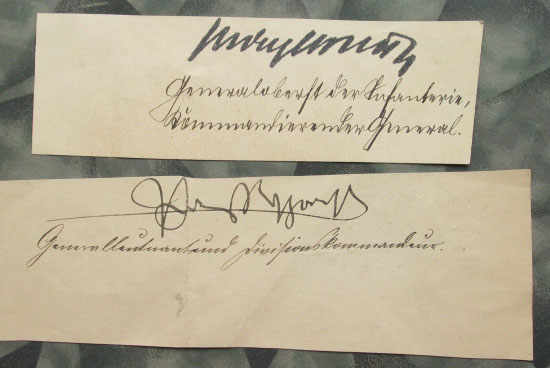 Generaloberst der Infanterie,
Kommandierender General.
Generalleutnant und Divisionskommandeur.